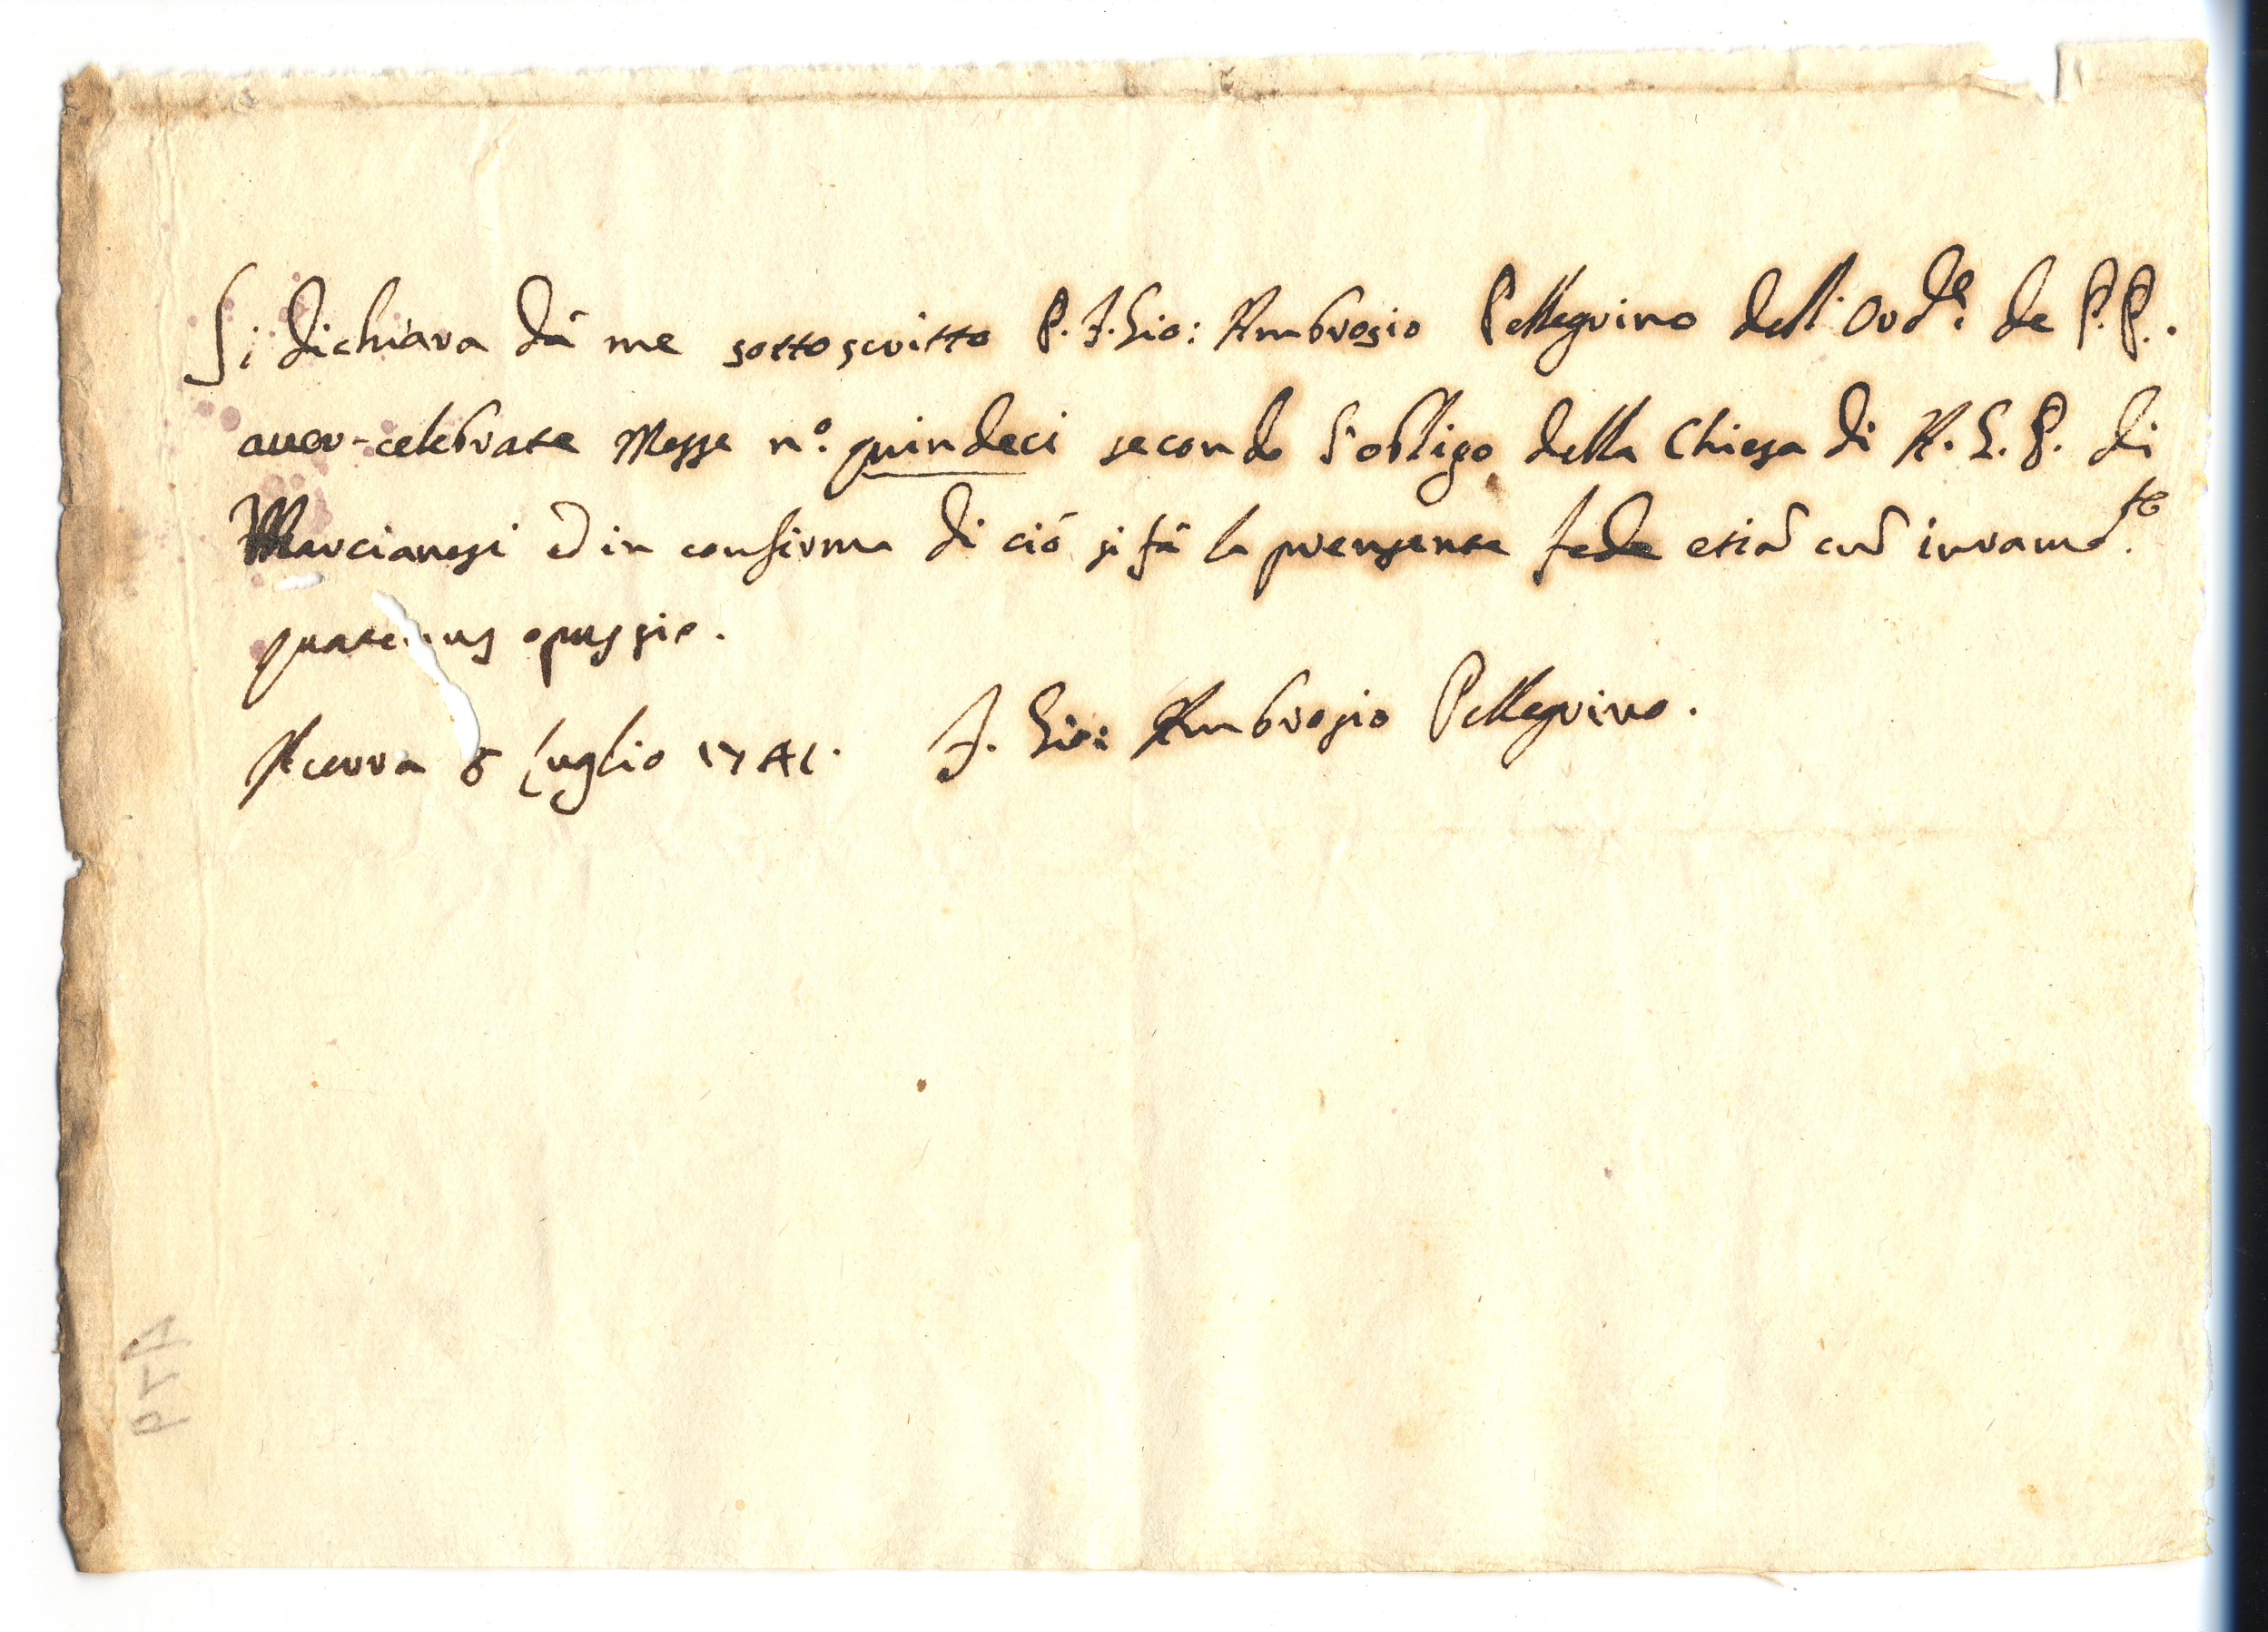 Si dichiara dà me sottoscritto P. F. Gio: Ambrosio Pellegrino dell' Ord.e de P.P.
auer-celebrate Messe n.o quindeci secondo l'obligo della Chiesa di A. G. P. di
Marcianesi ed in confirma di ciò si fà la prensente fede etiã cũ iuramẽ.to
quate nus opus sit.
Acerra 8 Luglio 1741. F. Gio: Ambrosio Pellegrino.